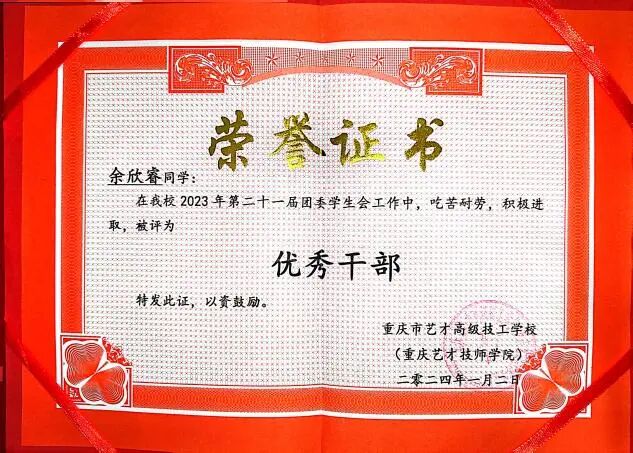 荣誉证书
余欣睿同学：
在我校2023年第二十一届团委学生会工作中，吃苦耐劳，积极进
取，被评为
优秀干部
特发此证，以资鼓励。
重庆市艺才高级技工学校
（重庆艺才技师学院）
二零二四年一月二日